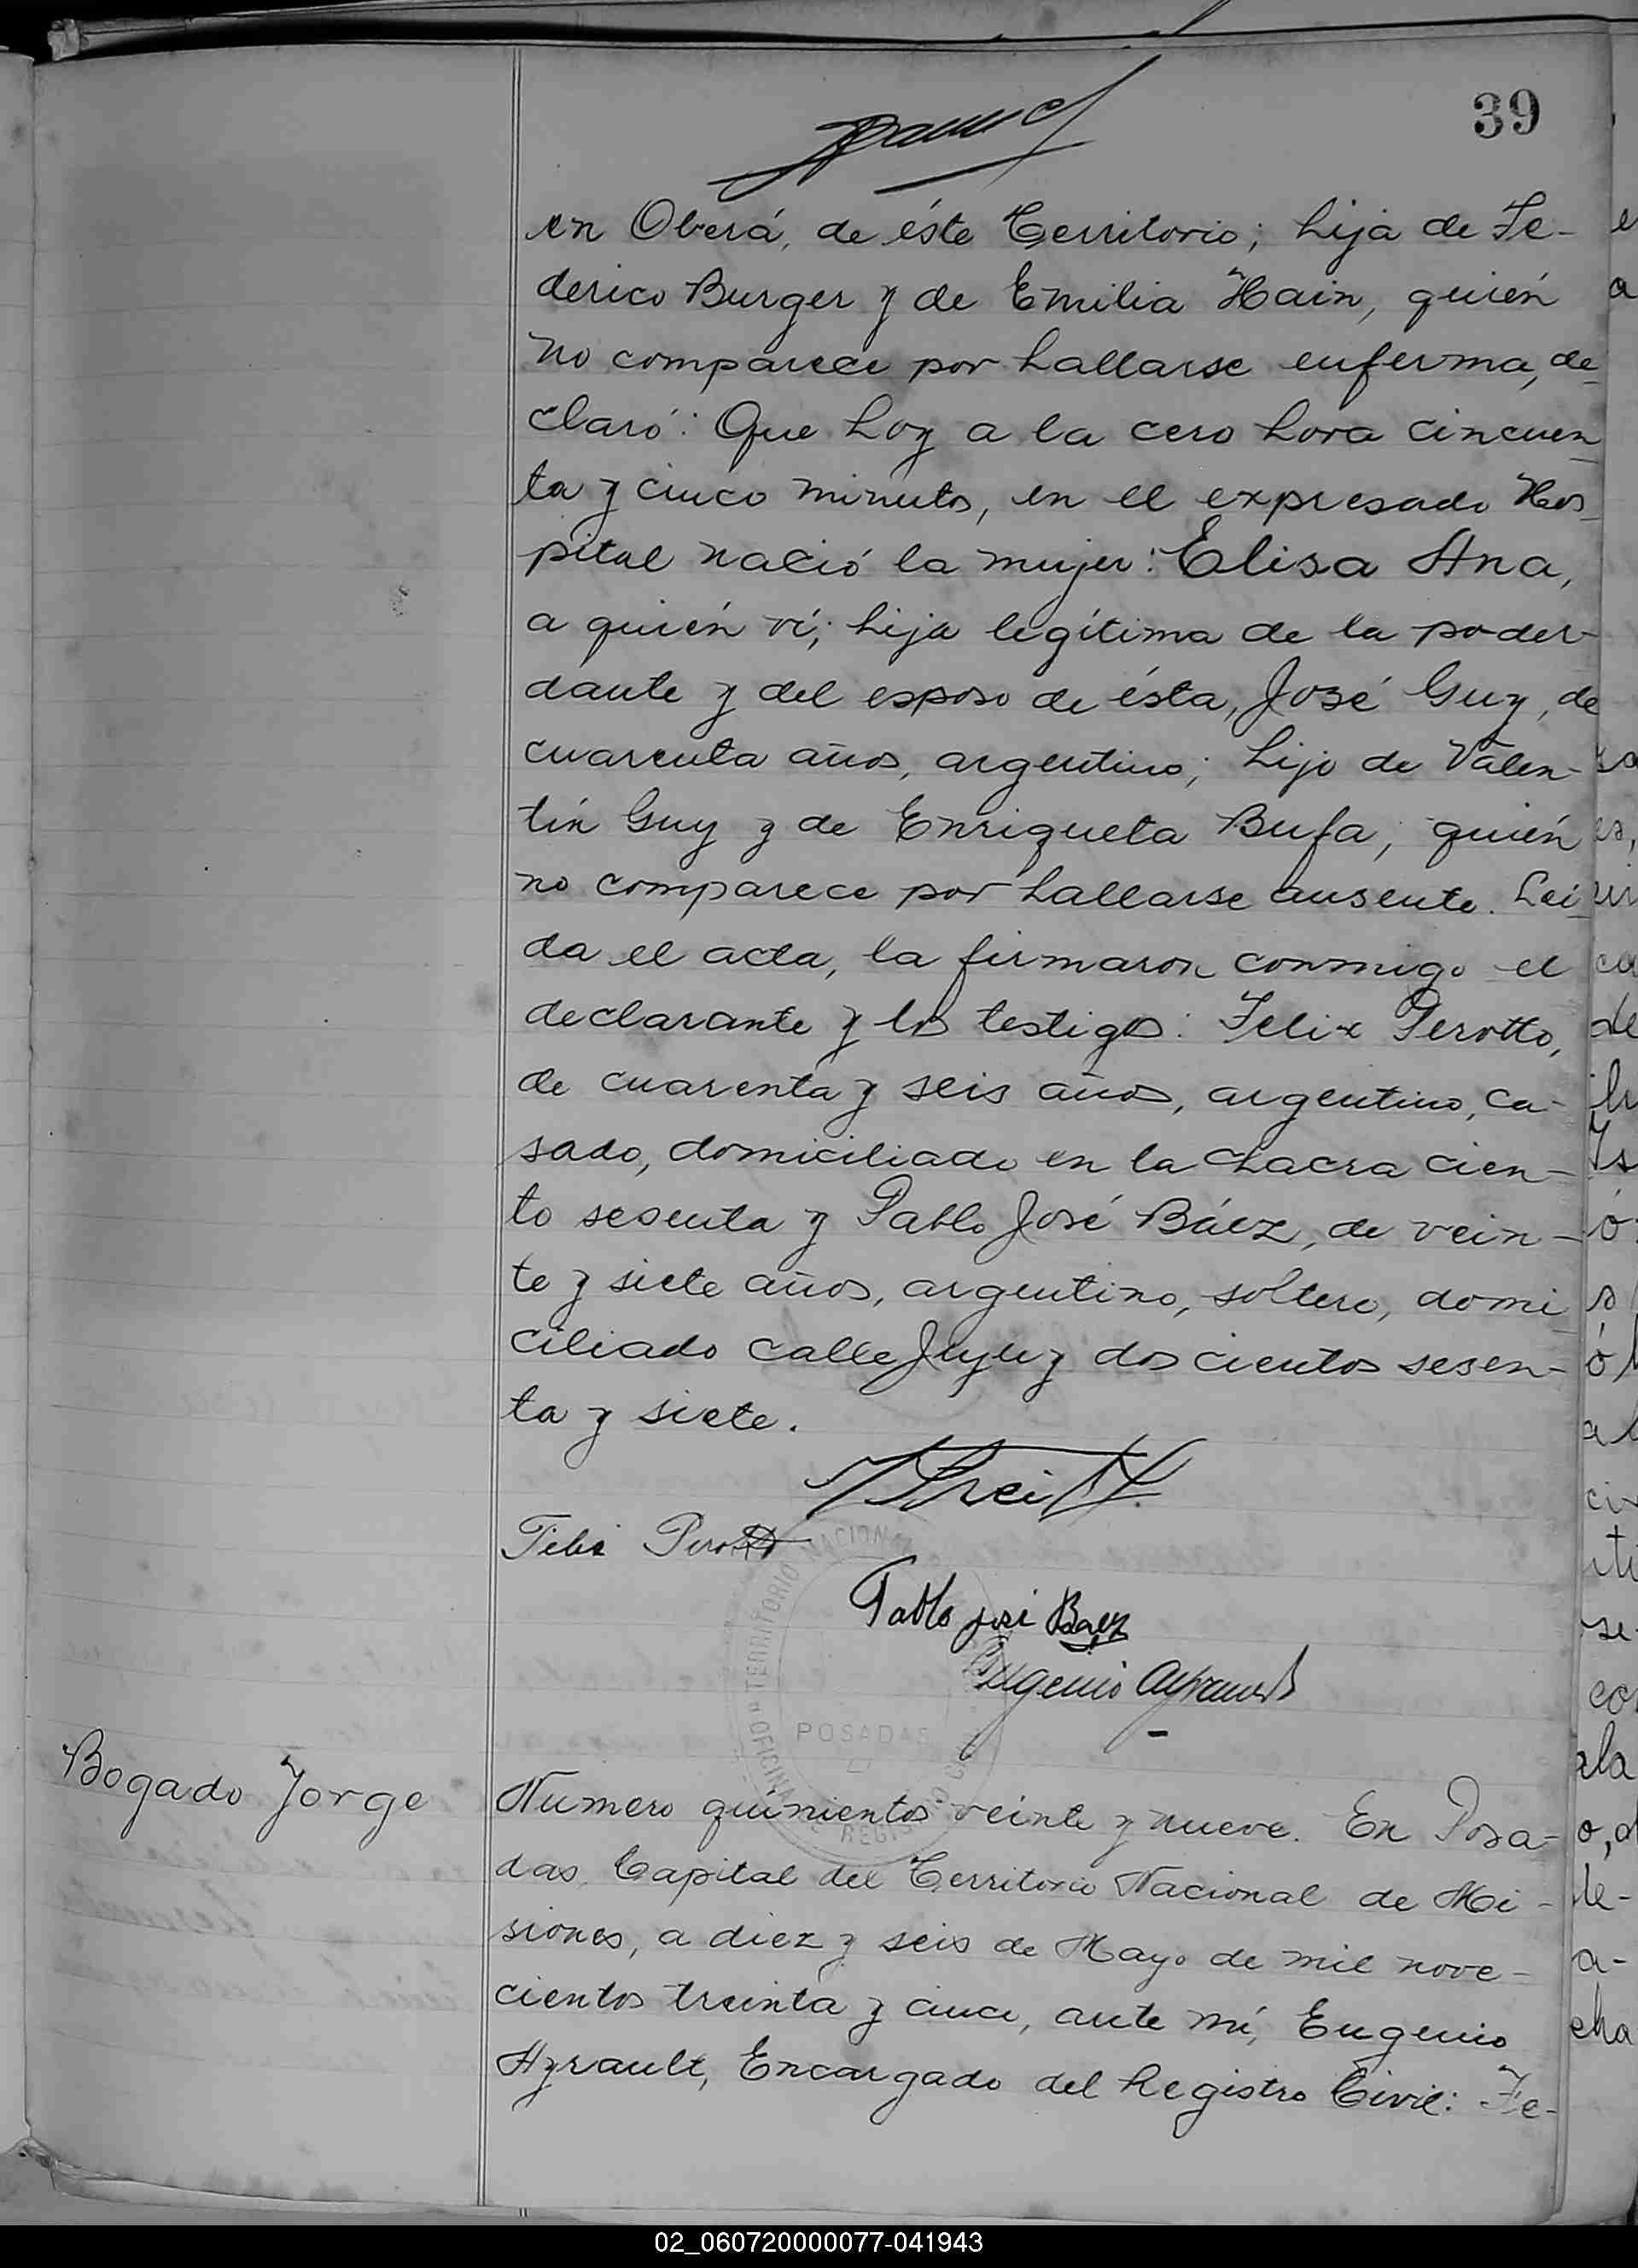 39
en Oberá, de éste Territorio; hija de Fe-
derico Burger y de Emilia Hain, quién
no comparece por hallarse enferma, de-
claró: Que hoy a la cero hora cincuen-
ta y cinco minutos, en el expresado Hos-
pital nació la mujer: Elisa Ana,
a quién ví; hija legítima de la poder-
dante y del esposo de ésta, José Guy, de
cuarenta años, argentino; hijo de Valen-
tín Guy y de Enriqueta Bufa; quién
no comparece por hallarse ausente. Leí-
da el acta, la firmaron conmigo el
declarante y los testigos: Felix Perotto,
de cuarenta y seis años, argentino, ca-
sado, domiciliado en la chacra cien-
to sesenta y Pablo José Báez, de vein-
te y siete años, argentino, soltero, domi-
ciliado calle Jujuy dos cientos sesen-
ta y siete.
Felix Perotto
Pablo José Baez
Eugenio Ayrault
TERRITORIO NACIONAL
POSADAS
OFICINA DE REGISTRO CIVIL
Bogado Jorge
Numero quinientos veinte y nueve. En Posa-
das, Capital del Territorio Nacional de Mi-
siones, a diez y seis de Mayo de mil nove-
cientos treinta y cinco, ante mí, Eugenio
Ayrault, Encargado del Registro Civil: Fe-
02_060720000077-041943